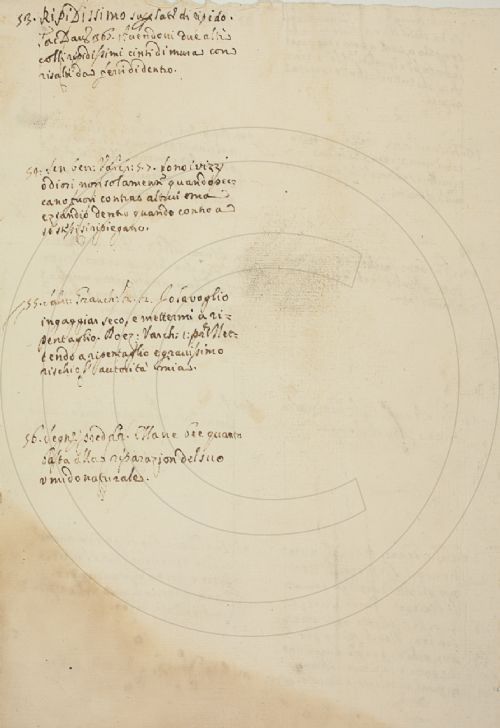 53. RipiDissimo superlat: di ripido.
Tac. Dav: 367. Essendovi due alti
colli ripidissimi cinti di mura con
risalti da ferir di dentro.
54. Sen. ben: Varch: 5. 7. sono i vizzi
odiosi non solamente quando pec=
cano fuori contra altrui ma
eziandio dentro quando contro a
se stessi si ripiegano.
55. Franch: Io la voglio
ingaggiar seco, e mettermi a ri=
pentaglio. Boez: Varch: 1: p: Met=
tendo a ripentaglio e gravissimo
rischio l'autorità mia.
56. Segn: pred: Ella ne bee quanto
basta alla riparazion del suo
umido naturale.